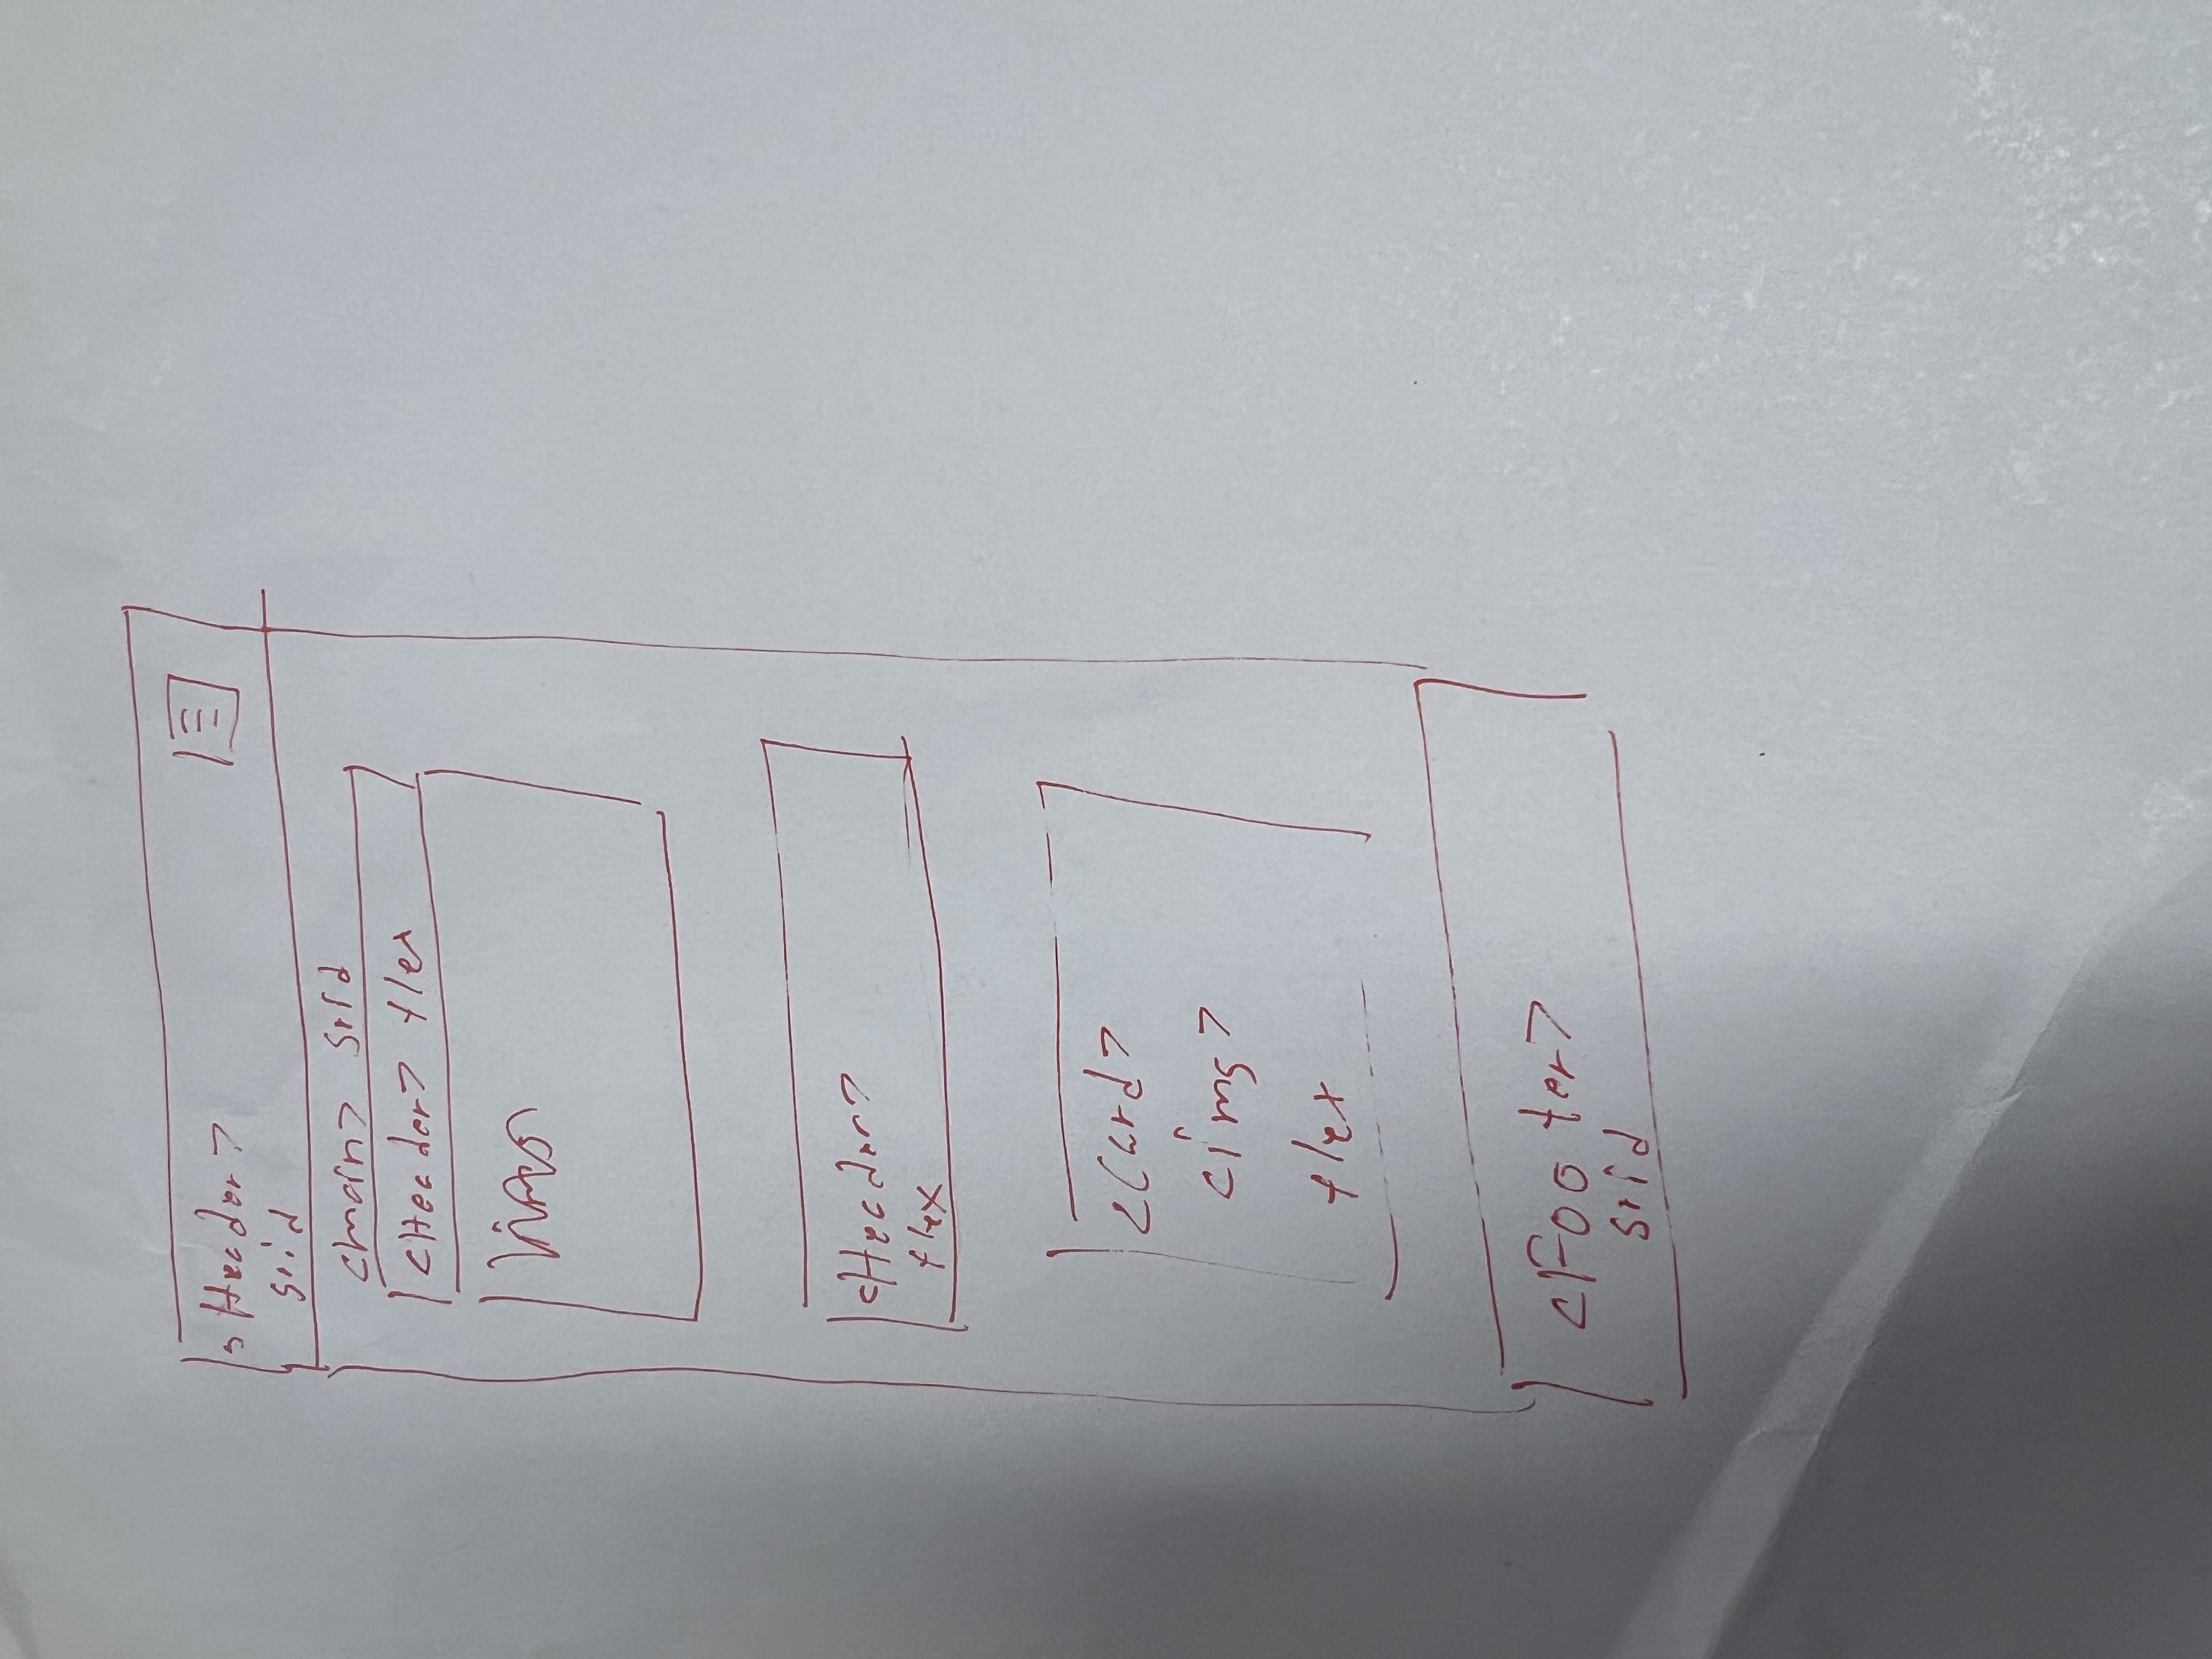 <Header>
grid
<main> grid
<Header> flex
<Header>
flex
<Card>
<img>
flex
<Footer>
grid